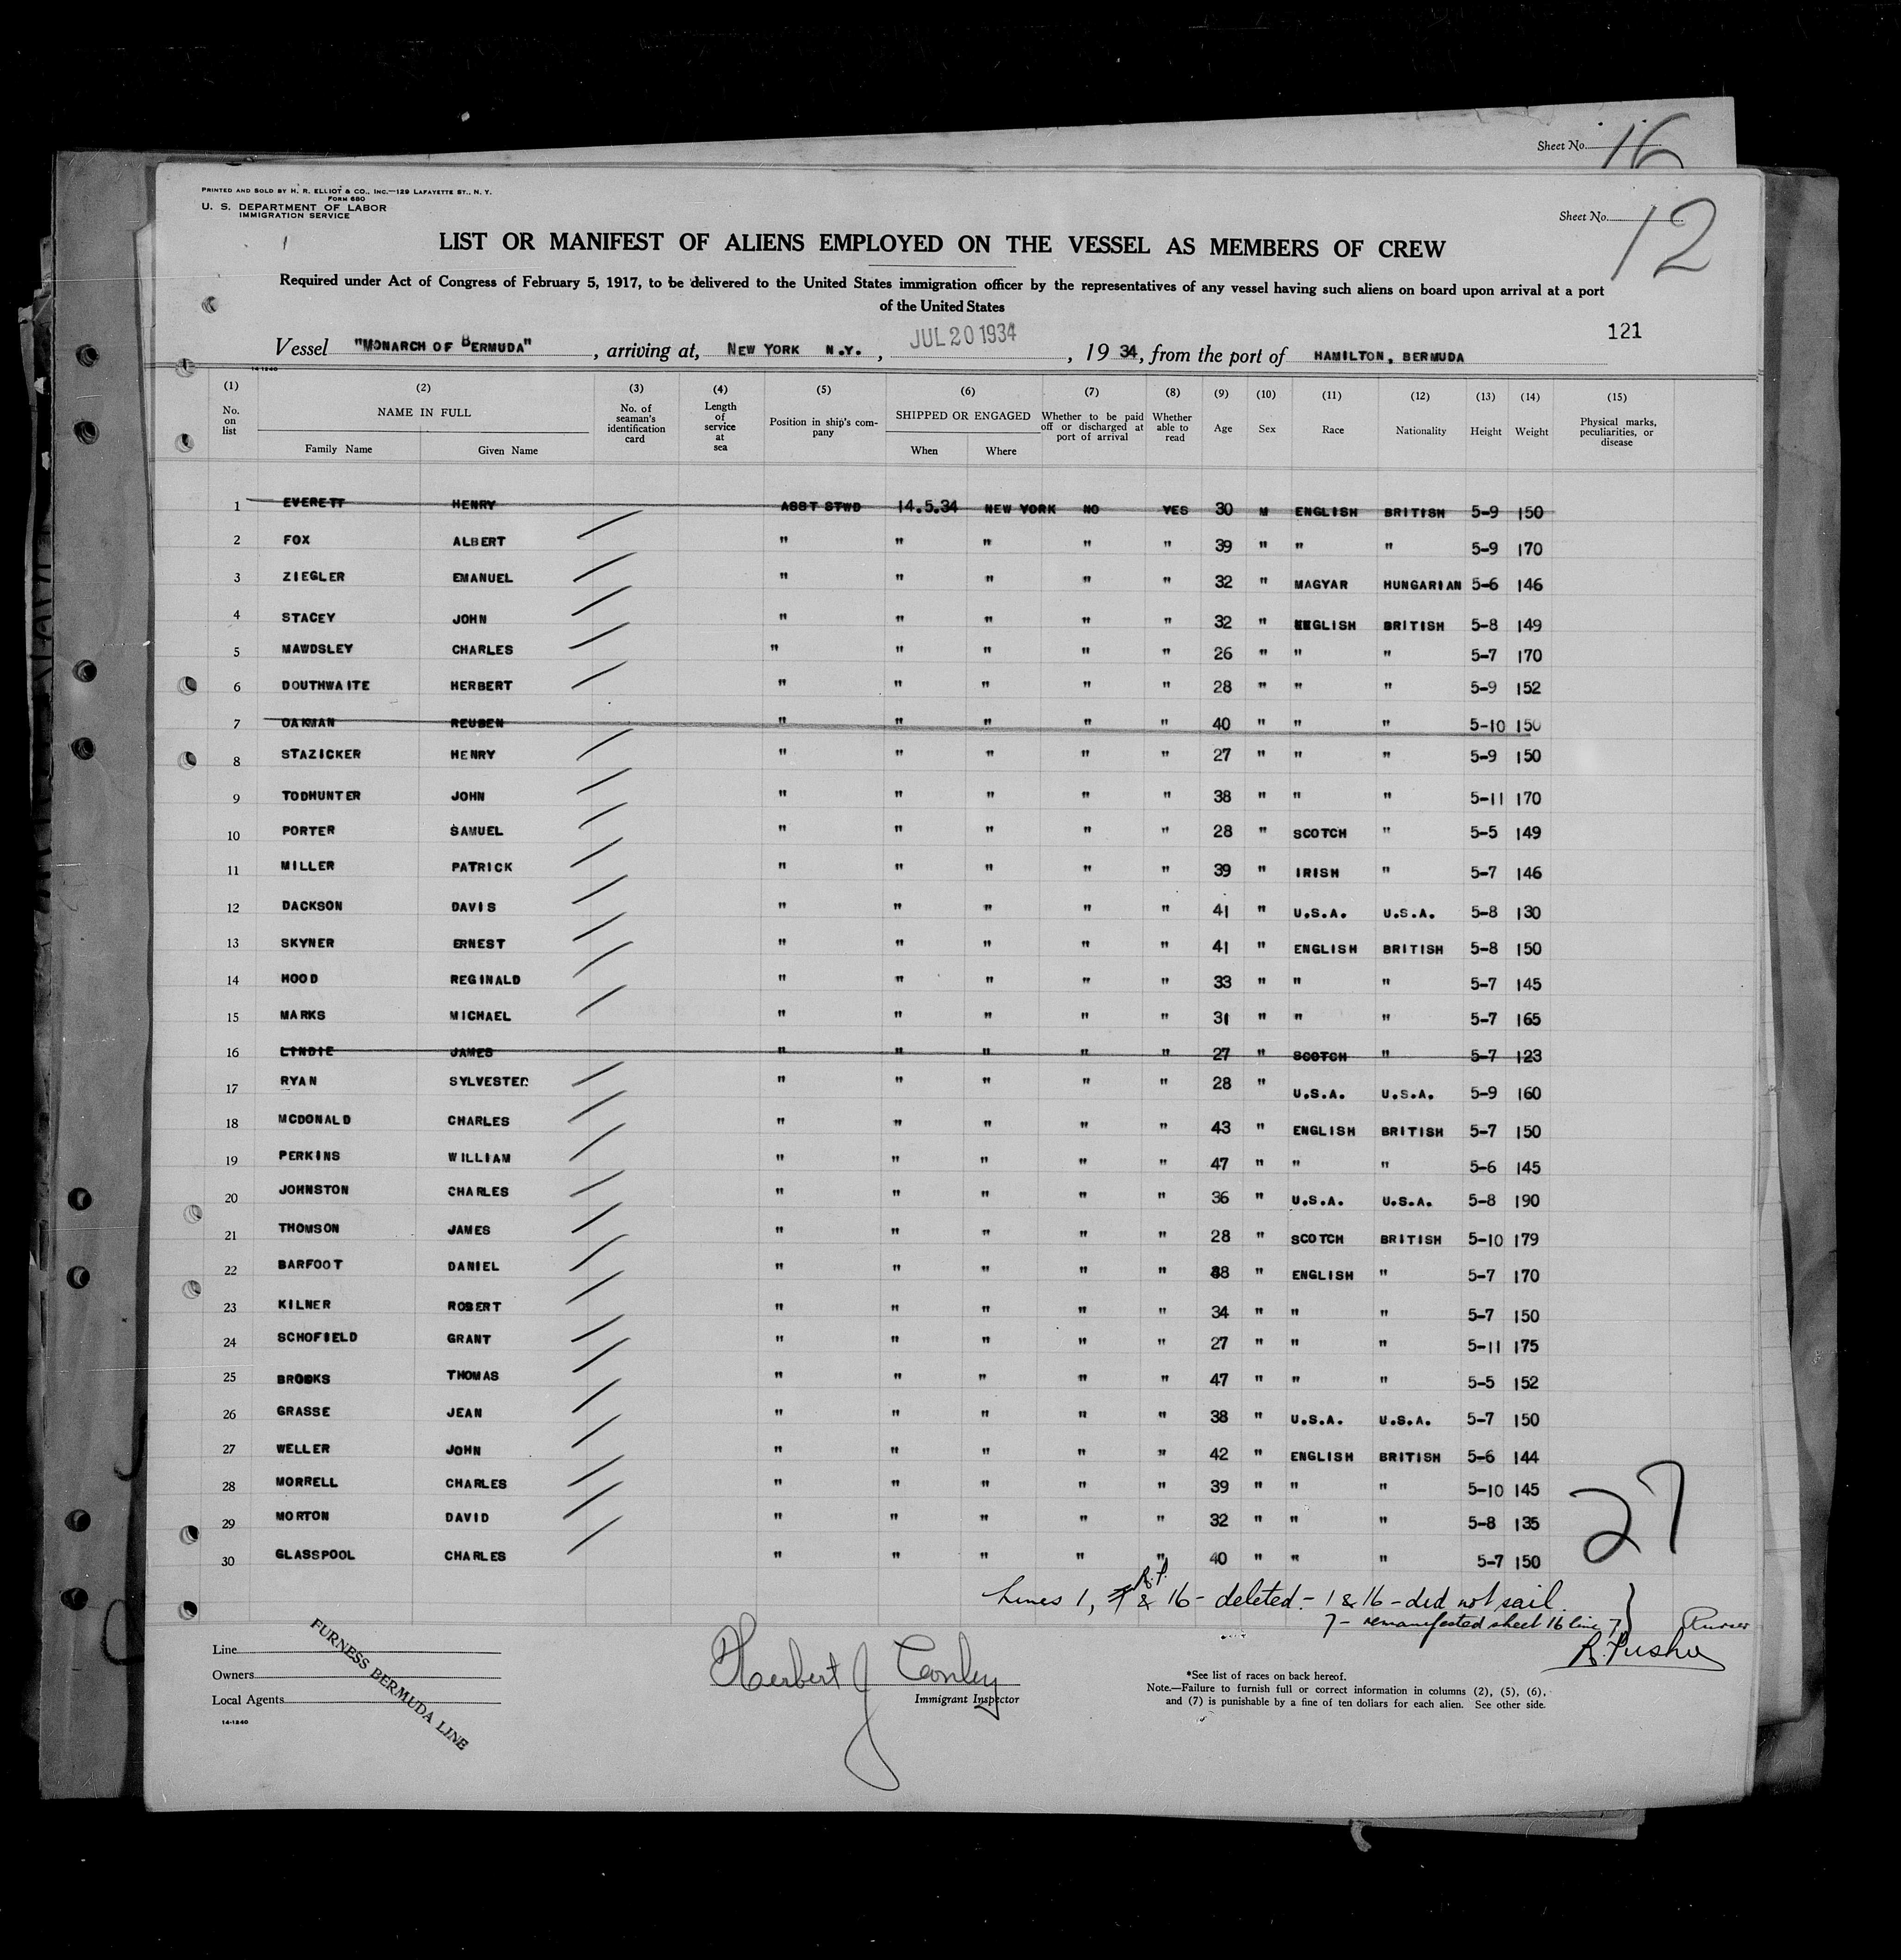 Sheet No. 16
PRINTED AND SOLD BY H. R. ELLIOT & CO., INC.—129 LAFAYETTE ST., N. Y.
FORM 680
U. S. DEPARTMENT OF LABOR
IMMIGRATION SERVICE
Sheet No. 12
LIST OR MANIFEST OF ALIENS EMPLOYED ON THE VESSEL AS MEMBERS OF CREW
Required under Act of Congress of February 5, 1917, to be delivered to the United States immigration officer by the representatives of any vessel having such aliens on board upon arrival at a port
of the United States
121
Vessel "MONARCH OF BERMUDA", arriving at, NEW YORK N.Y., JUL 20 1934, 19 34, from the port of HAMILTON, BERMUDA
14-1240
(1) (2) (3) (4) (5) (6) (7) (8) (9) (10) (11) (12) (13) (14) (15)
No. on list NAME IN FULL No. of seaman's identification card Length of service at sea Position in ship's company SHIPPED OR ENGAGED Whether to be paid off or discharged at port of arrival Whether able to read Age Sex Race Nationality Height Weight Physical marks, peculiarities, or disease
Family Name Given Name When Where
1 EVERETT HENRY ASST STWD 14.5.34 NEW YORK NO YES 30 M ENGLISH BRITISH 5-9 150
2 FOX ALBERT " " " " " 39 " " " 5-9 170
3 ZIEGLER EMANUEL " " " " " 32 " MAGYAR HUNGARIAN 5-6 146
4 STACEY JOHN " " " " " 32 " ENGLISH BRITISH 5-8 149
5 MAWDSLEY CHARLES " " " " " 26 " " " 5-7 170
6 DOUTHWAITE HERBERT " " " " " 28 " " " 5-9 152
7 OAKMAN REUBEN " " " " " 40 " " " 5-10 150
8 STAZICKER HENRY " " " " " 27 " " " 5-9 150
9 TODHUNTER JOHN " " " " " 38 " " " 5-11 170
10 PORTER SAMUEL " " " " " 28 " SCOTCH " 5-5 149
11 MILLER PATRICK " " " " " 39 " IRISH " 5-7 146
12 DACKSON DAVIS " " " " " 41 " U.S.A. U.S.A. 5-8 130
13 SKYNER ERNEST " " " " " 41 " ENGLISH BRITISH 5-8 150
14 HOOD REGINALD " " " " " 33 " " " 5-7 145
15 MARKS MICHAEL " " " " " 31 " " " 5-7 165
16 LINDIE JAMES " " " " " 27 " SCOTCH " 5-7 123
17 RYAN SYLVESTER " " " " " 28 " U.S.A. U.S.A. 5-9 160
18 MCDONALD CHARLES " " " " " 43 " ENGLISH BRITISH 5-7 150
19 PERKINS WILLIAM " " " " " 47 " " " 5-6 145
20 JOHNSTON CHARLES " " " " " 36 " U.S.A. U.S.A. 5-8 190
21 THOMSON JAMES " " " " " 28 " SCOTCH BRITISH 5-10 179
22 BARFOOT DANIEL " " " " " 38 " ENGLISH " 5-7 170
23 KILNER ROBERT " " " " " 34 " " " 5-7 150
24 SCHOFIELD GRANT " " " " " 27 " " " 5-11 175
25 BROOKS THOMAS " " " " " 47 " " " 5-5 152
26 GRASSE JEAN " " " " " 38 " U.S.A. U.S.A. 5-7 150
27 WELLER JOHN " " " " " 42 " ENGLISH BRITISH 5-6 144
28 MORRELL CHARLES " " " " " 39 " " " 5-10 145
29 MORTON DAVID " " " " " 32 " " " 5-8 135
30 GLASSPOOL CHARLES " " " " " 40 " " " 5-7 150
27
Lines 1, 7 & 16 - deleted - 1 & 16 - did not sail.
7 - remanifested sheet 16 line 7
Purser
Line
Owners
Local Agents
FURNESS BERMUDA LINE
14-1240
Herbert J Conley
Immigrant Inspector
*See list of races on back hereof.
Note.—Failure to furnish full or correct information in columns (2), (5), (6),
and (7) is punishable by a fine of ten dollars for each alien. See other side.